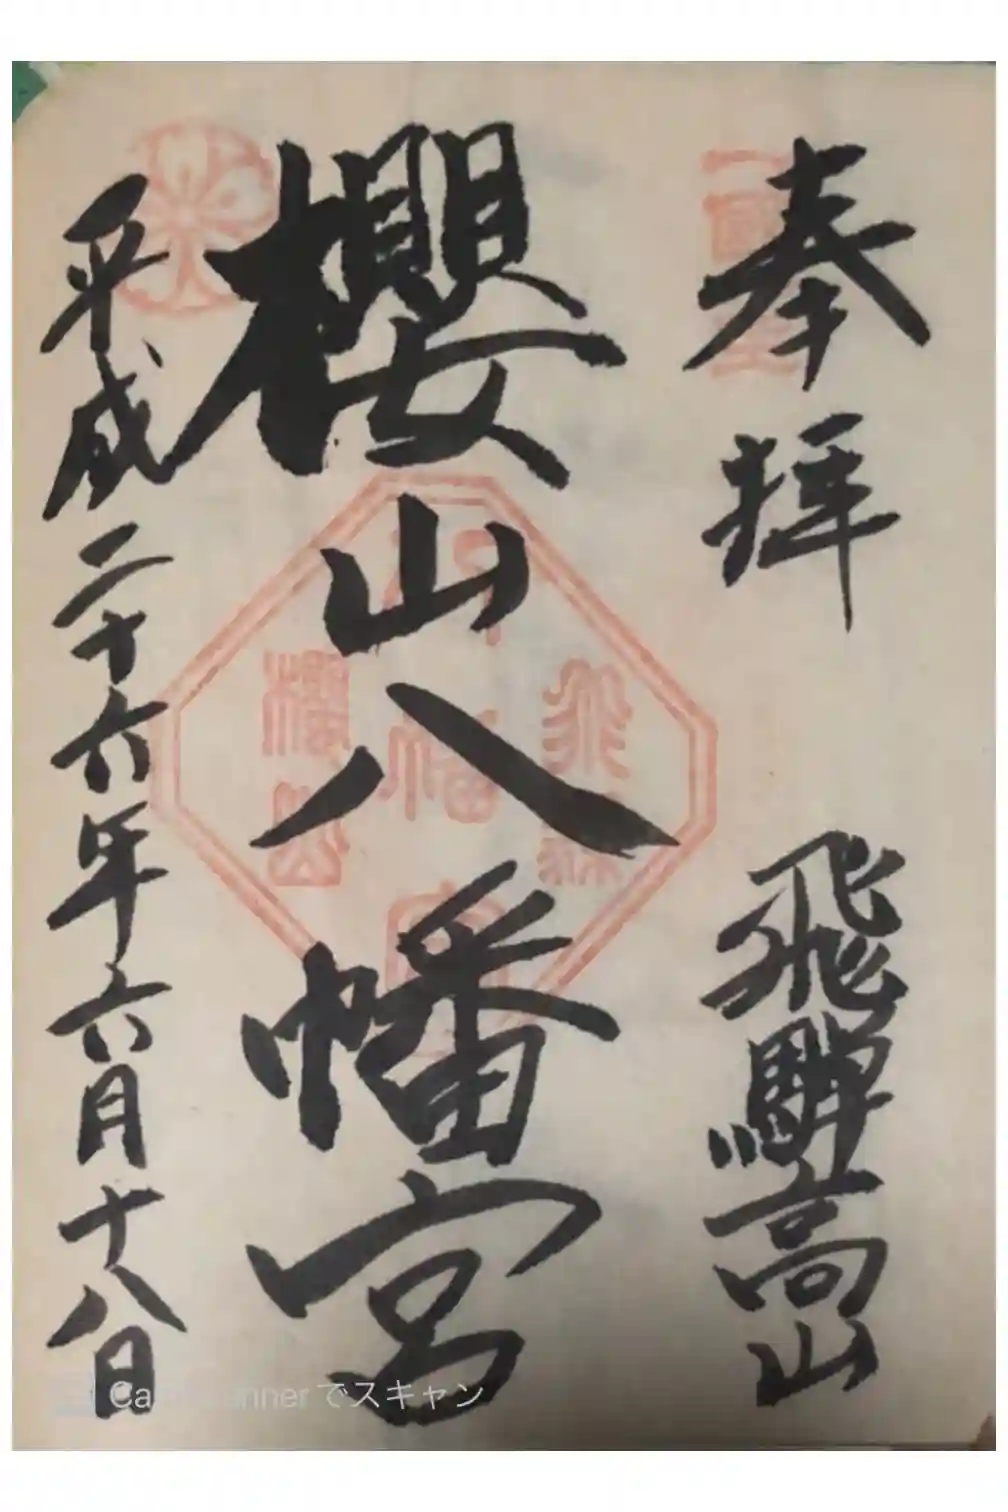 奉拝
飛騨高山
櫻山八幡宮
八幡宮
櫻山
平成二十六年六月十八日
でスキャン